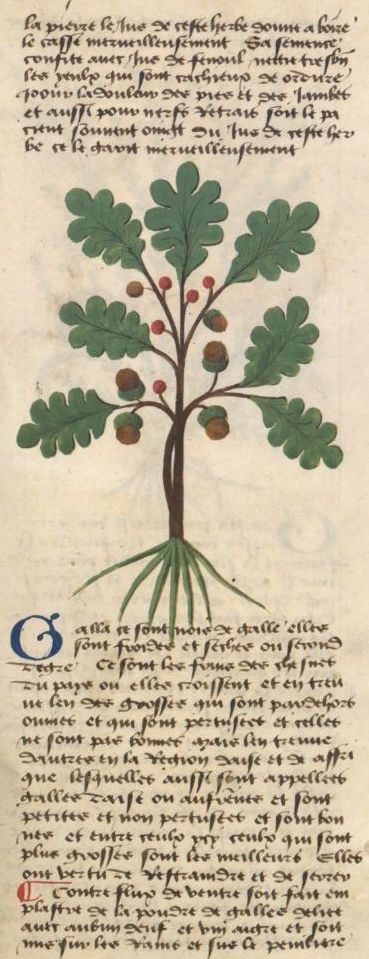 la pierre le Jus de ceste herbe donne a boire
le casse merveilleusement Sa semence
confite avec Jus de fenoul nettie tresbn
les yeulx qui sont cachieux de ordure
pour la douleur des pies et des Jambes
et aussi pour nerfs Retrais soit le pa
cient souvent oingt du Jus de ceste her
be ce le garit merveilleusement
Galla ce sont nois de galle elles
sont froides et seches ou second
degre Ce sont les fruis des chesnes
du pays ou elles croissent et en treu
ue len des grosses qui sont par dehors
et qui sont pertusees et celles
ne sont pas bonnes mais len treuue
dautres en la Region dasie et de affri
que lesquelles aussi sont appellees
galles dasie ou et sont
petites et non pertusees et sont bon
nes et entre ceulx ycy ceulx qui sont
plus grosses sont les meilleurs Elles
ont vertu de Restraindre et de
Contre flux de ventre soit fait em
plastre de la pouldre de galles
avec aubun deuf et vin aigre et soit
mis sur les Rains et sur le